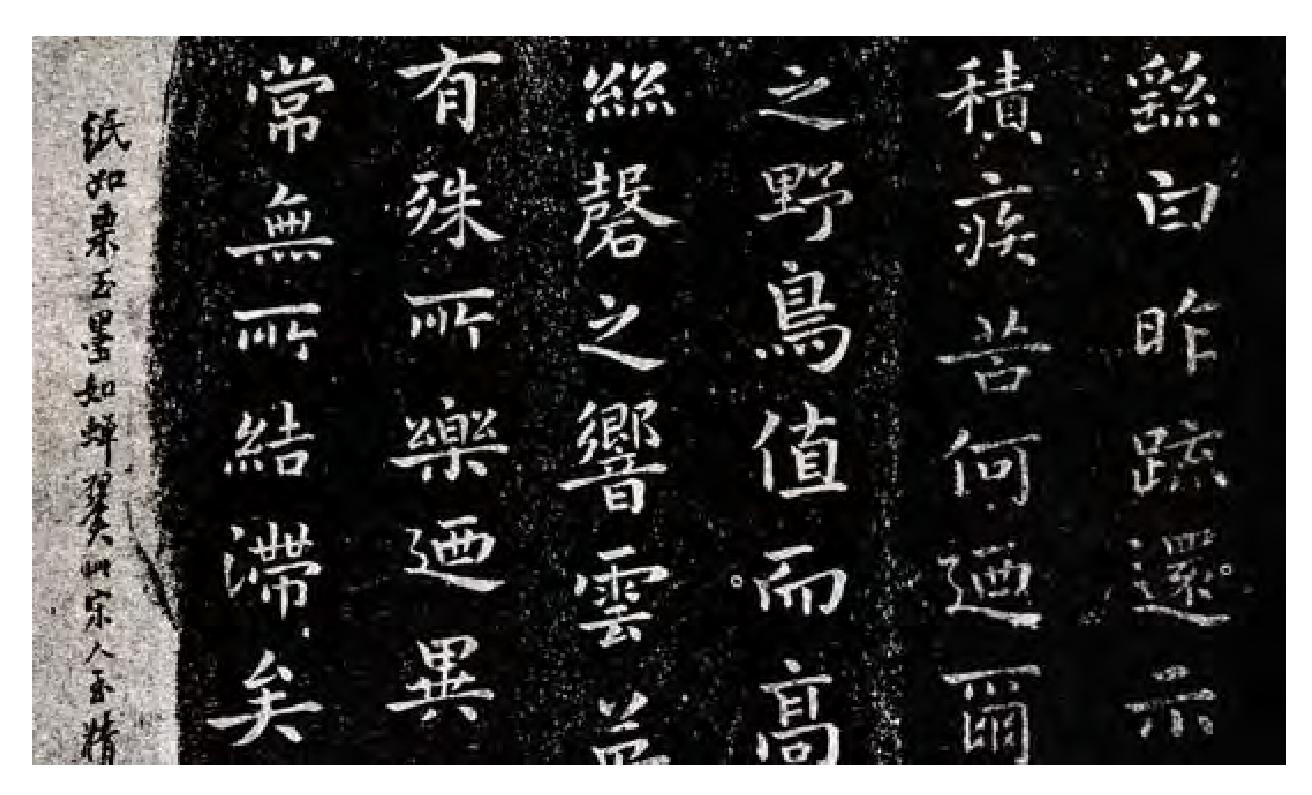 繇白昨疏還示
積疾苦何迺爾
之野鳥值而高
絲磬之響雲
有殊所樂迺異
常無所結滯矣
紙如栗玉墨如蟬翼宋人玉精